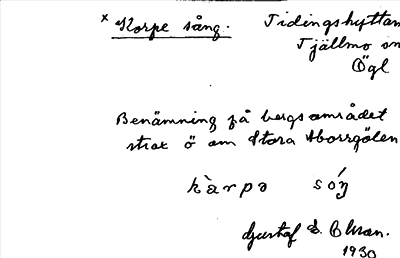 x Korpe sång. Tidingshyttan
Tjällmo sn
Ögl
Benämning på bergsområdet
strax ö om Stora Aborrgölen
kàrpə sóŋ
Gustaf E. Olsson.
1930